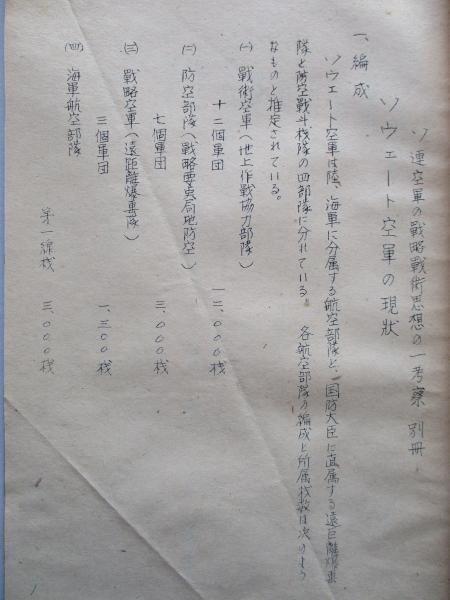 ソ連空軍の戦略戦術思想の一考察 別冊
ソウェート空軍の現状
一、編成
ソウェート空軍は陸、海軍に分属する航空部隊と、国防大臣に直属する遠距離爆撃
隊と防空戦斗機隊の四部隊に分れている。 各航空部隊の編成と所属機数は次のよう
なものと推定されている。
(一) 戦術空軍(地上作戦協力部隊)
十二個軍団 一二、〇〇〇機
(二) 防空部隊(戦略要点局地防空)
七個軍団 三、〇〇〇機
(三) 戦略空軍(遠距離爆撃隊)
三個軍団 一、三〇〇機
(四) 海軍航空部隊
第一線機 三、〇〇〇機